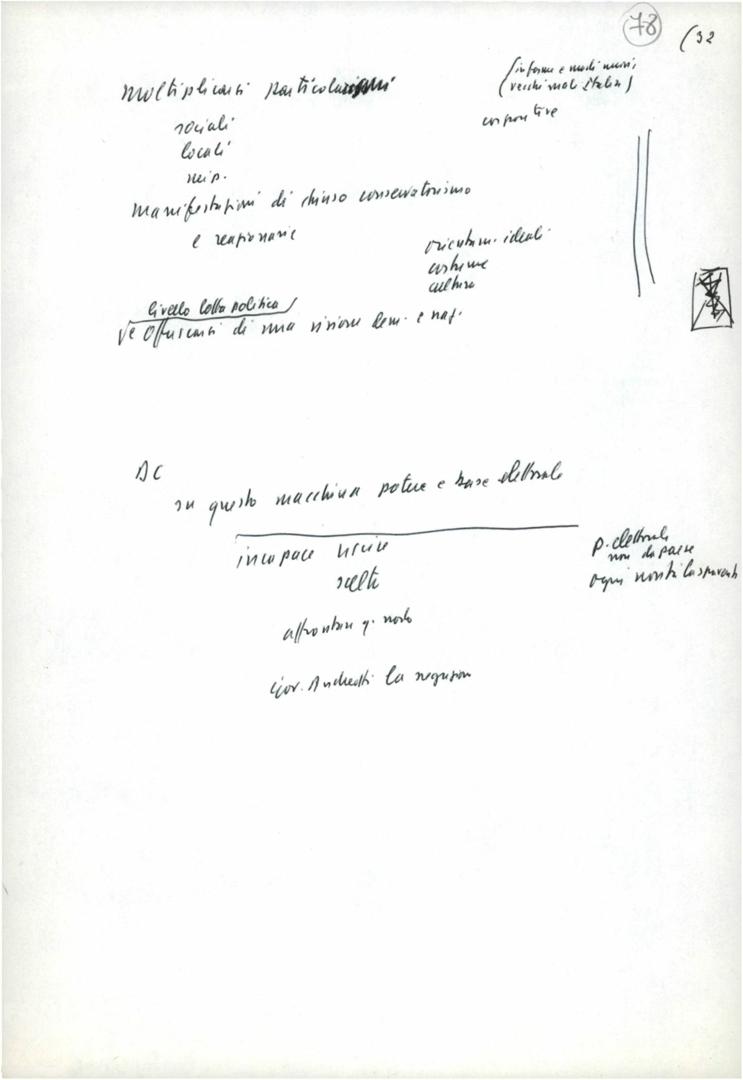 78
(32
moltiplicarsi particolarismi
(in forme e modi nuovi,
vecchi mali Italia)
sociali
corporative
locali
Manifestazioni di chiuso conservatorismo
e reazionarie
orientam. ideali
costume
cultura
livello lotta politica
offuscarsi di una visione dem. e naz.
DC
su questo macchina potere e base elettorale
incapace uscire
p. elettorale
non da paese
scelte
ogni
affrontare q. nodo
Gov. Andreotti la